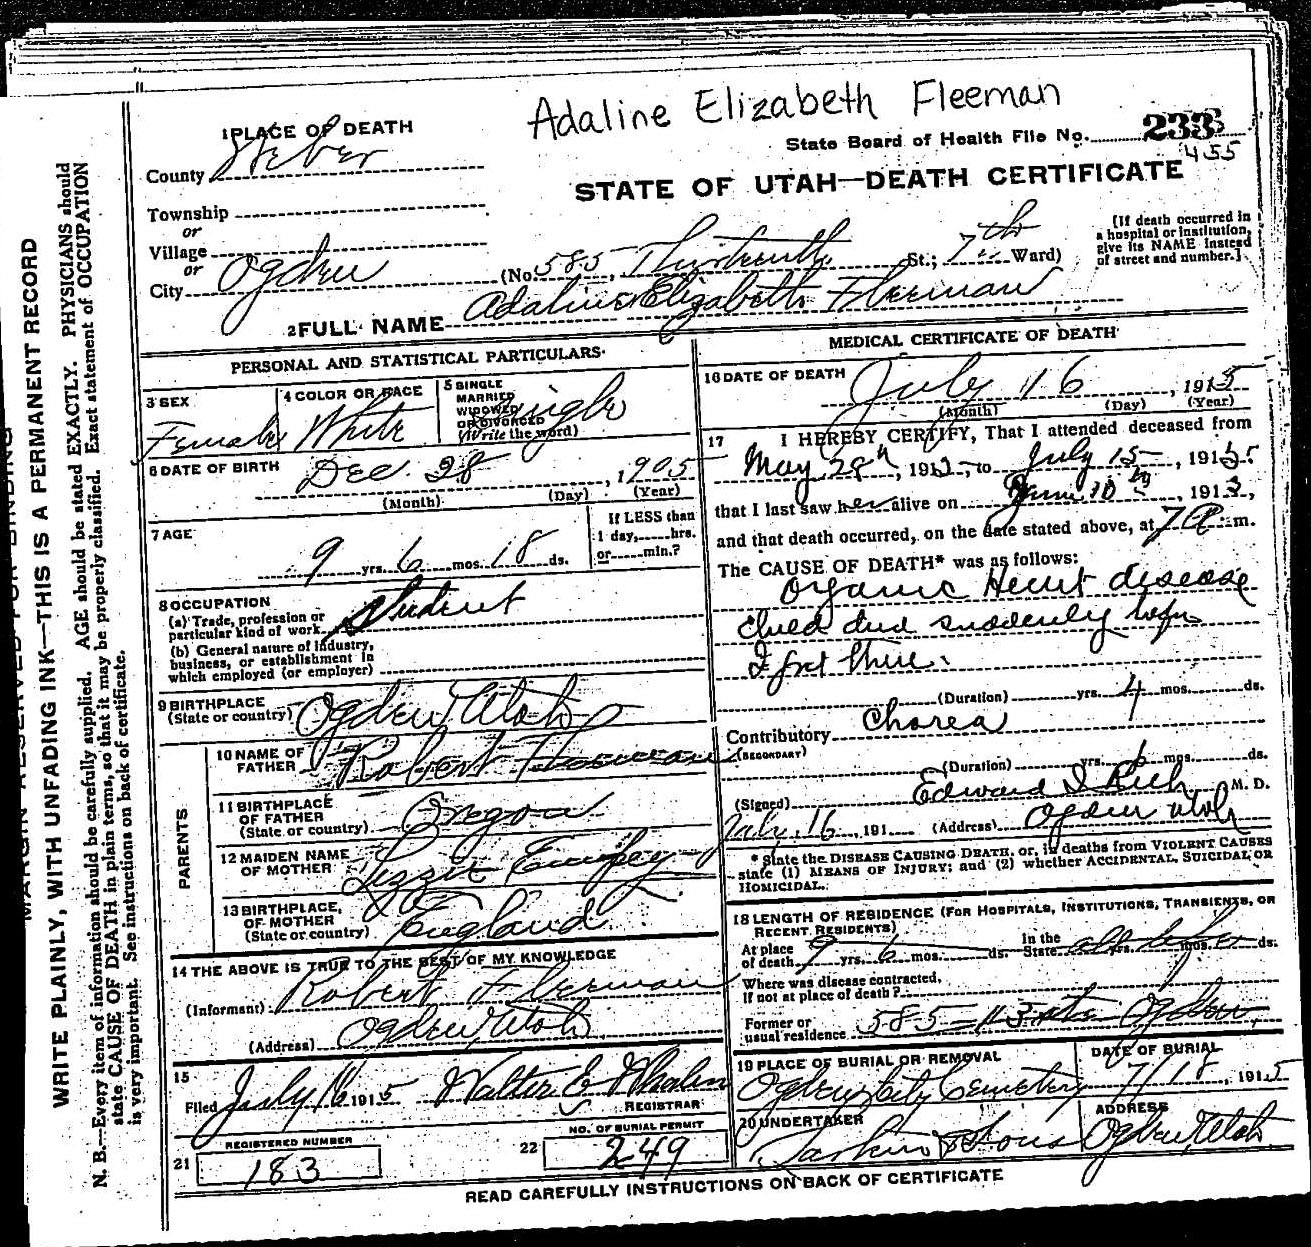 Adaline Elizabeth Fleeman
1 PLACE OF DEATH
State Board of Health File No. 233
455
County Weber
STATE OF UTAH—DEATH CERTIFICATE
Township
or
Village
or
City Ogden (No. 585, Thirteenth St.; 7th Ward)
(If death occurred in
a hospital or institution,
give its NAME instead
of street and number.)
2 FULL NAME Adaline Elizabeth Fleeman
PERSONAL AND STATISTICAL PARTICULARS
3 SEX
Female
4 COLOR OR RACE
White
5 SINGLE
MARRIED
WIDOWED
OR DIVORCED
(Write the word)
Single
6 DATE OF BIRTH
Dec 28, 1905
(Month) (Day) (Year)
7 AGE
9 yrs. 6 mos. 18 ds.
If LESS than
1 day,.....hrs.
or.....min.?
8 OCCUPATION
(a) Trade, profession or
particular kind of work
Student
(b) General nature of industry,
business, or establishment in
which employed (or employer)
9 BIRTHPLACE
(State or country) Ogden Utah
PARENTS
10 NAME OF
FATHER Robert Fleeman
11 BIRTHPLACE
OF FATHER
(State or country) Oregon
12 MAIDEN NAME
OF MOTHER Lizzie
13 BIRTHPLACE,
OF MOTHER
(State or country) England
14 THE ABOVE IS TRUE TO THE BEST OF MY KNOWLEDGE
(Informant) Robert Fleeman
(Address) Ogden, Utah
15
Filed July 16 1915 Walter E Whalen
REGISTRAR
21
REGISTERED NUMBER
183
22
NO. OF BURIAL PERMIT
249
MEDICAL CERTIFICATE OF DEATH
16 DATE OF DEATH
July 16, 1915
(Month) (Day) (Year)
17 I HEREBY CERTIFY, That I attended deceased from
May 28th, 191, to July 15, 1915
that I last saw her alive on June 10th, 191,
and that death occurred, on the date stated above, at 7 A m.
The CAUSE OF DEATH* was as follows:
Organic Heart disease
Child died suddenly before
I got there.
(Duration) yrs. 4 mos. ds.
Contributory Chorea
(SECONDARY)
(Duration) yrs. 6 mos. ds.
(Signed) Edward I Rich M. D.
July 16, 191 (Address) Ogden Utah
* State the DISEASE CAUSING DEATH, or, in deaths from VIOLENT CAUSES
state (1) MEANS OF INJURY; and (2) whether ACCIDENTAL, SUICIDAL, OR
HOMICIDAL.
18 LENGTH OF RESIDENCE (FOR HOSPITALS, INSTITUTIONS, TRANSIENTS, OR
RECENT RESIDENTS)
At place
of death 9 yrs. 6 mos. ds.
In the
State all life yrs. mos. ds.
Where was disease contracted,
if not at place of death?
Former or
usual residence 585 - 13 Ogden
19 PLACE OF BURIAL OR REMOVAL
Ogden City Cemetery
DATE OF BURIAL
7/18, 1915
20 UNDERTAKER
Larkin & Sons
ADDRESS
Ogden Utah
READ CAREFULLY INSTRUCTIONS ON BACK OF CERTIFICATE
MARGIN RESERVED FOR BINDING
WRITE PLAINLY, WITH UNFADING INK—THIS IS A PERMANENT RECORD
N. B.—Every item of information should be carefully supplied. AGE should be stated EXACTLY. PHYSICIANS should
state CAUSE OF DEATH in plain terms, so that it may be properly classified. Exact statement of OCCUPATION
is very important. See instructions on back of certificate.